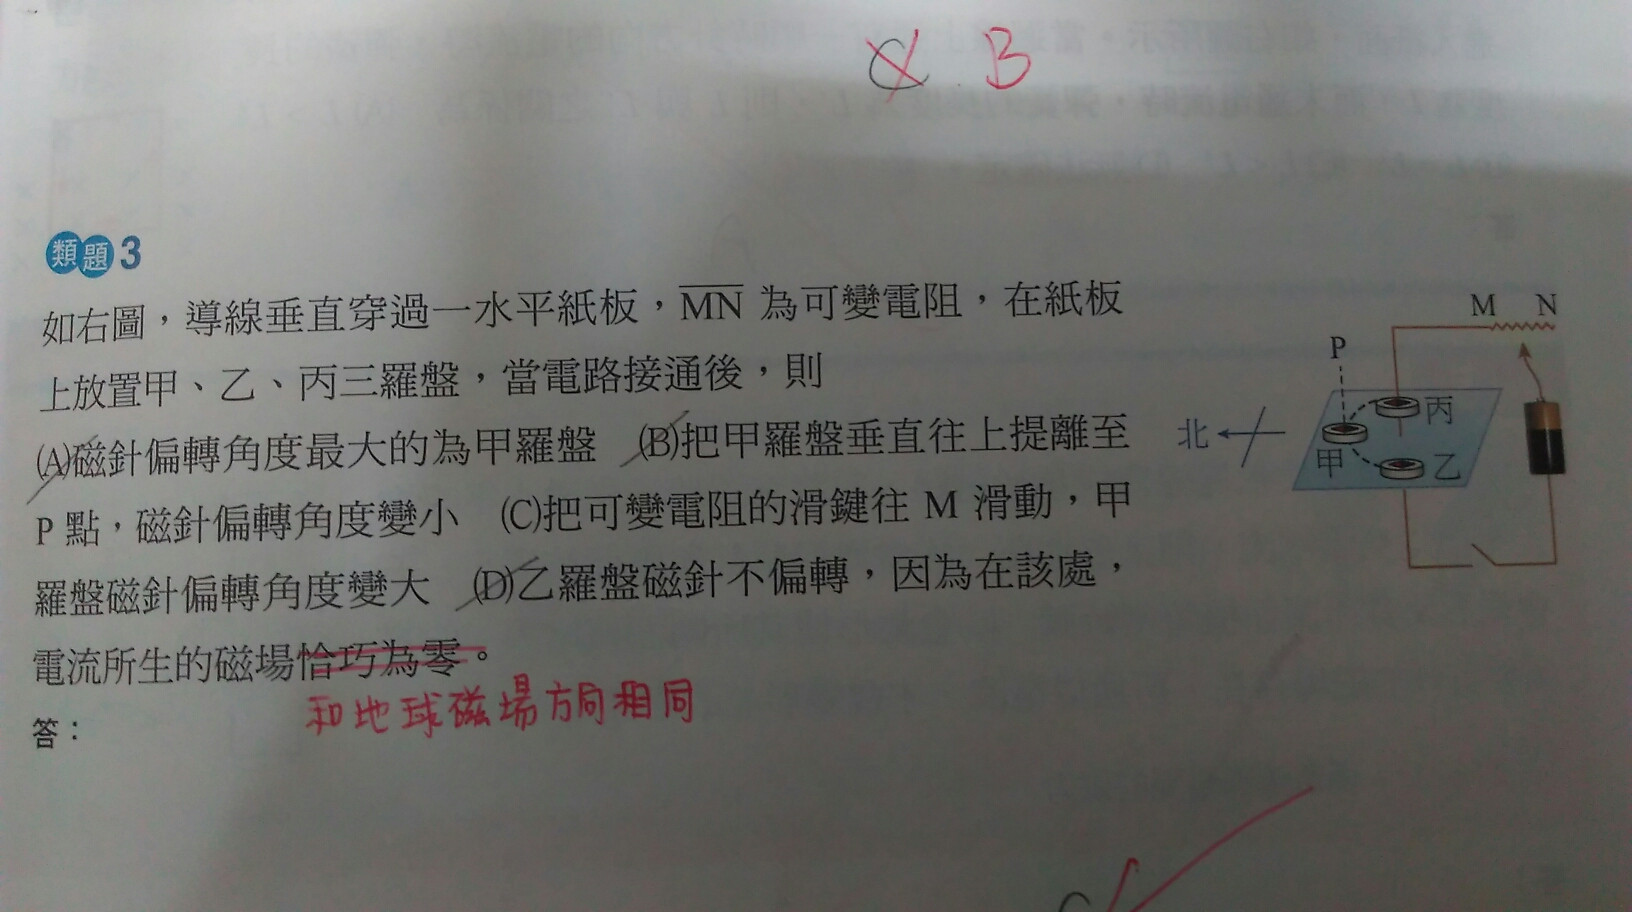 C B
類題3
如右圖，導線垂直穿過一水平紙板，MN 為可變電阻，在紙板
上放置甲、乙、丙三羅盤，當電路接通後，則
(A)磁針偏轉角度最大的為甲羅盤 (B)把甲羅盤垂直往上提離至
P 點，磁針偏轉角度變小 (C)把可變電阻的滑鍵往 M 滑動，甲
羅盤磁針偏轉角度變大 (D)乙羅盤磁針不偏轉，因為在該處，
電流所生的磁場恰巧為零。
和地球磁場方向相同
答：
M N
P
丙
北
甲 乙